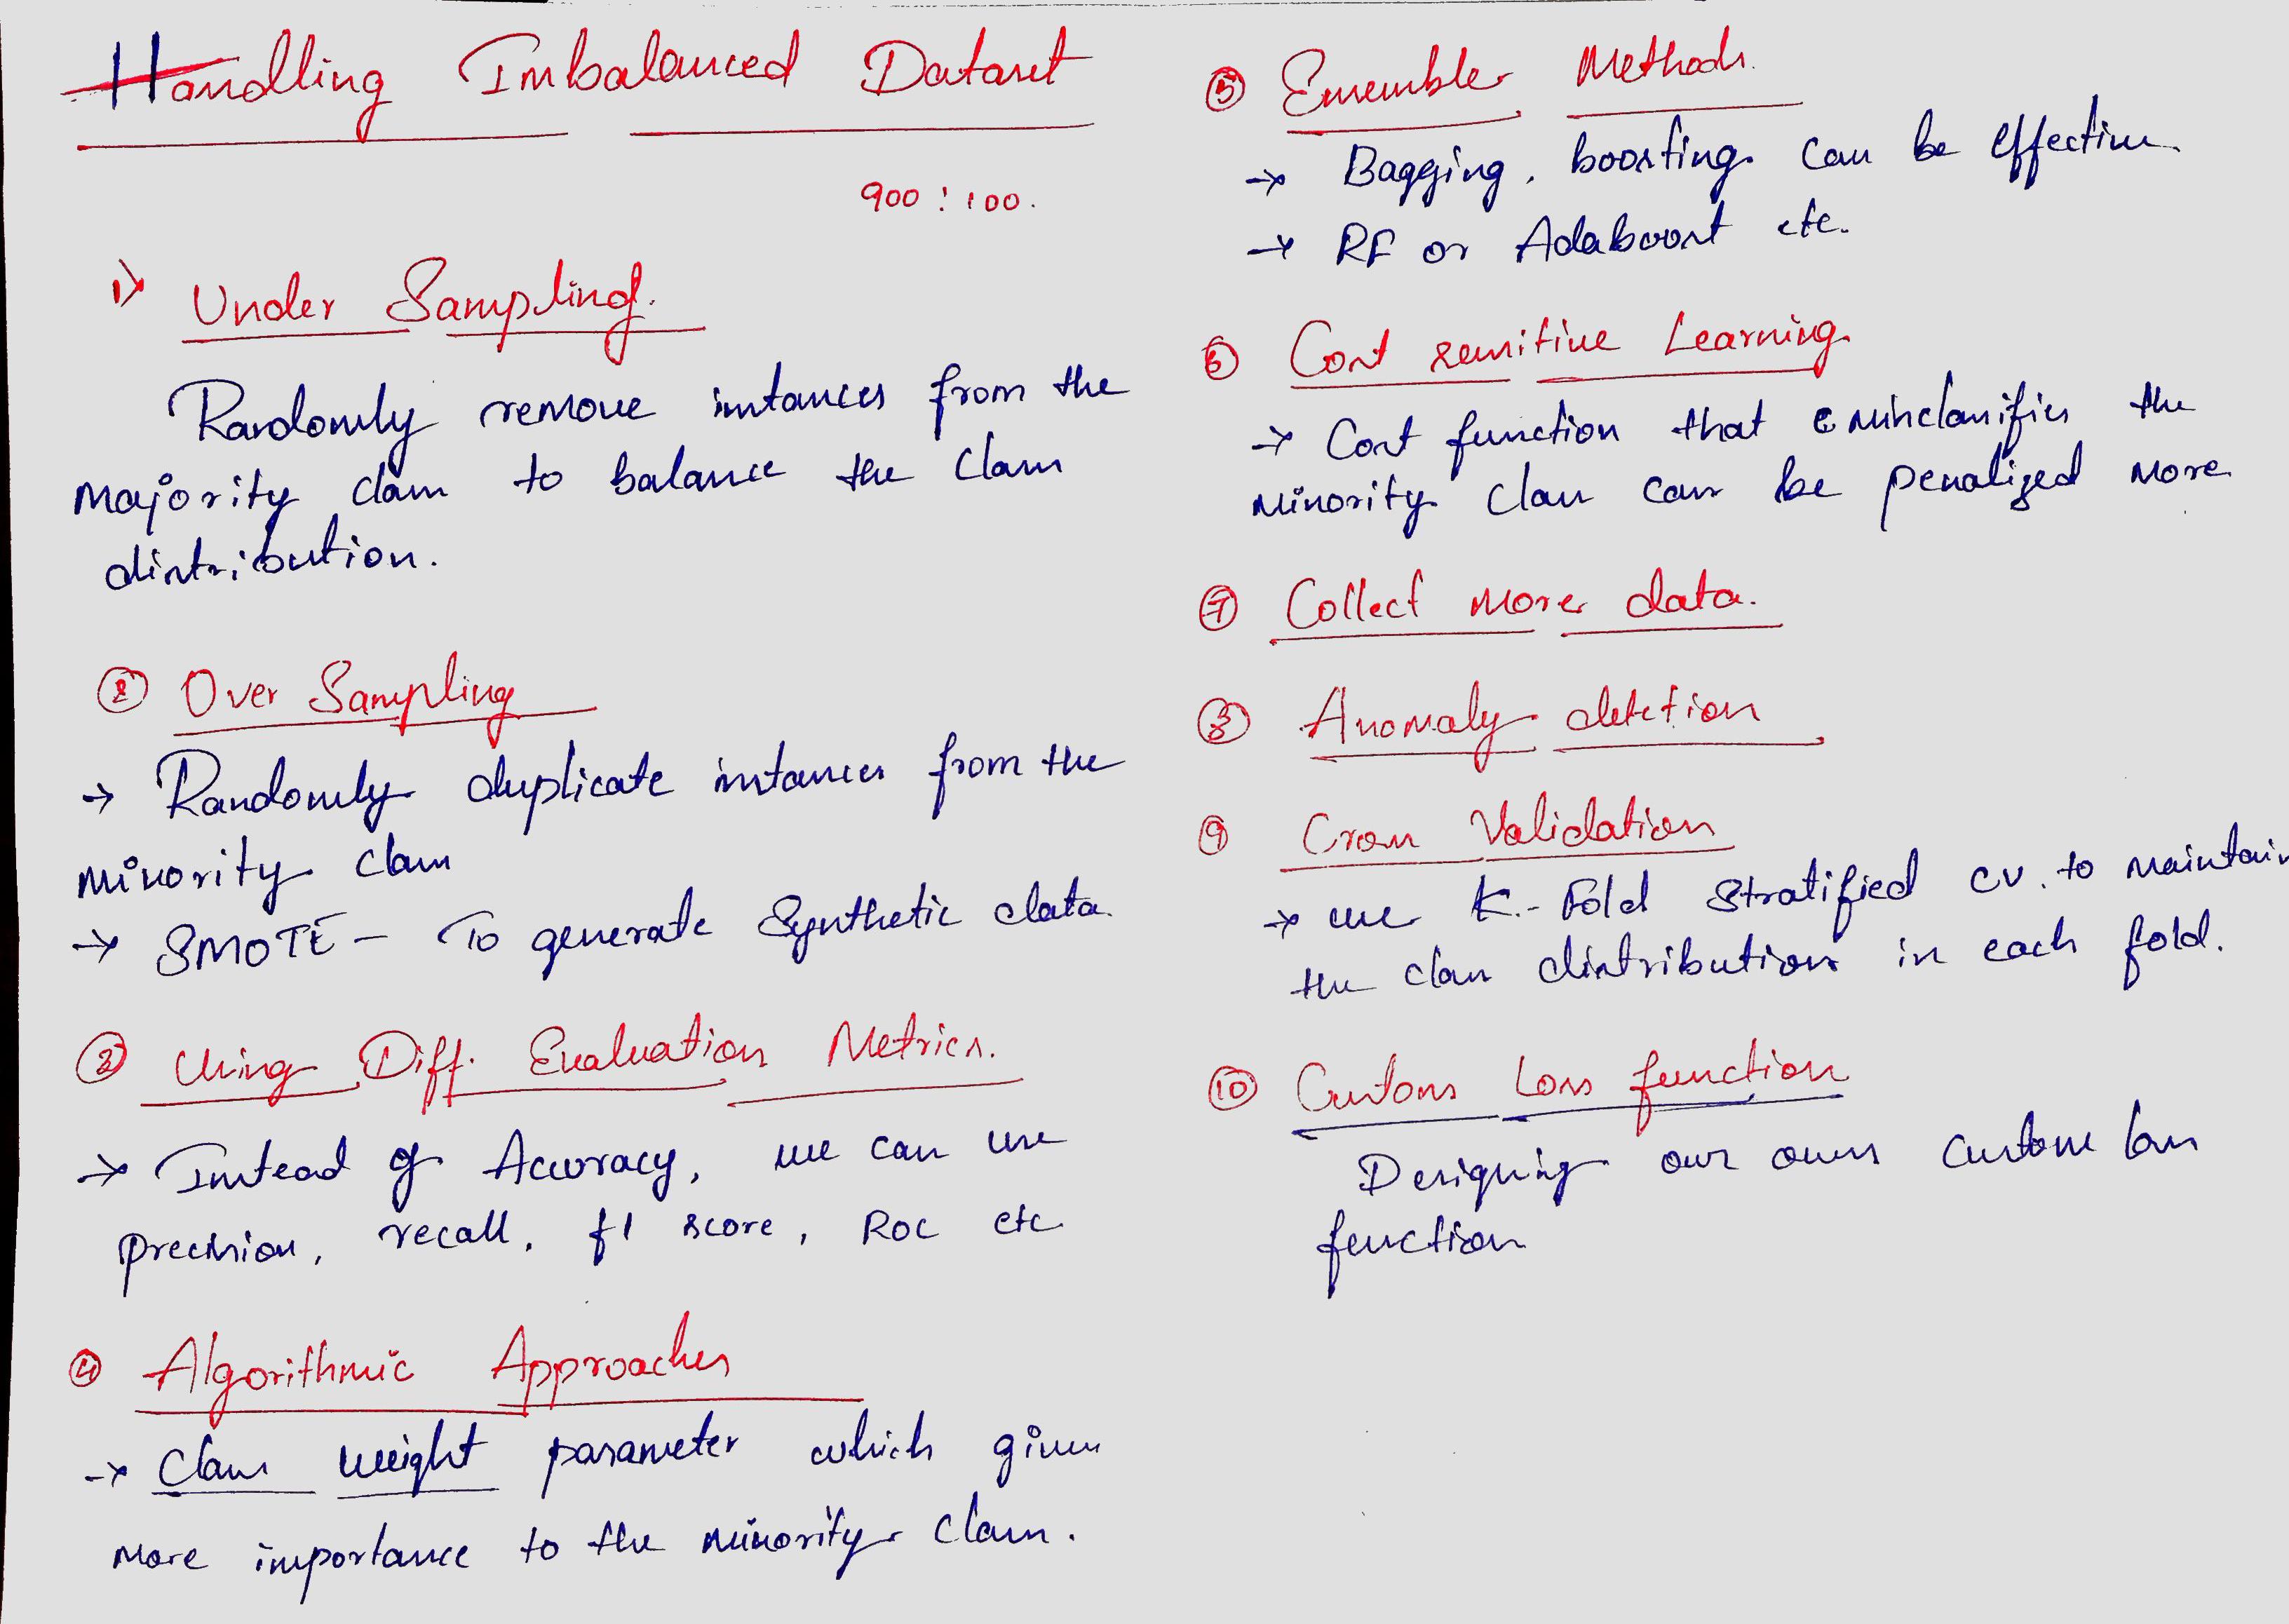 Handling Imbalanced Dataset
900 : 100.
1) Under Sampling.
Randomly remove instances from the
majority class to balance the class
distribution.
② Over Sampling
→ Randomly duplicate instances from the
minority class
→ SMOTE - To generate Synthetic data.
③ Using Diff. Evaluation Metrics.
→ Instead of Accuracy, we can use
precision, recall, f1 score, ROC etc
④ Algorithmic Approaches
→ Class weight parameter which gives
more importance to the minority class.
⑤ Ensembler Methods.
→ Bagging, boosting can be effective.
→ RF or Adaboost etc.
⑥ Cost sensitive Learning.
→ Cost function that misclassifies the
minority class can be penalized more
⑦ Collect more data.
⑧ Anomaly detection
⑨ Cross Validation
→ use K-Fold Stratified CV. to maintain
the class distribution in each fold.
⑩ Custom Loss function
Designing our own custom loss
function